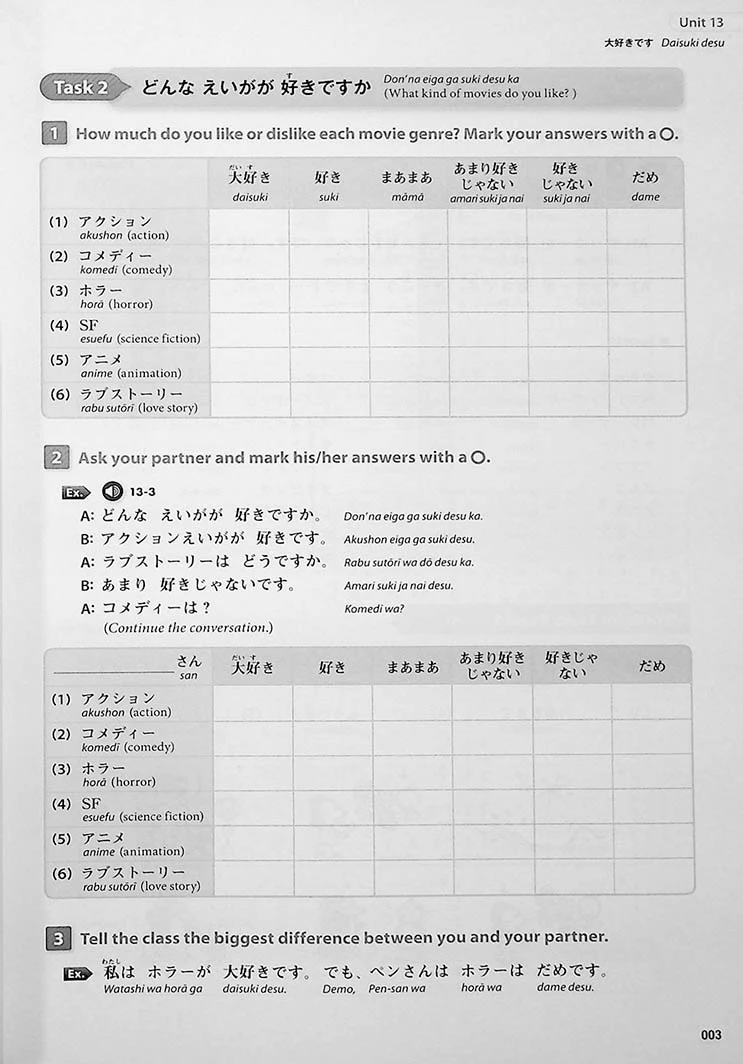 Unit 13
大好きです Daisuki desu
Task 2 どんな えいがが 好きですか Don'na eiga ga suki desu ka
す
(What kind of movies do you like? )
1 How much do you like or dislike each movie genre? Mark your answers with a O.
だい す
大好き 好き まあまあ あまり好きじゃない 好きじゃない だめ
daisuki suki māmā amari suki ja nai suki ja nai dame
(1) アクション
akushon (action)
(2) コメディー
komedī (comedy)
(3) ホラー
horā (horror)
(4) SF
esuefu (science fiction)
(5) アニメ
anime (animation)
(6) ラブストーリー
rabu sutōrī (love story)
2 Ask your partner and mark his/her answers with a O.
Ex. 13-3
A: どんな えいがが 好きですか。 Don'na eiga ga suki desu ka.
B: アクションえいがが 好きです。 Akushon eiga ga suki desu.
A: ラブストーリーは どうですか。 Rabu sutōrī wa dō desu ka.
B: あまり 好きじゃないです。 Amari suki ja nai desu.
A: コメディーは？ Komedī wa?
(Continue the conversation.)
だい す
さん 大好き 好き まあまあ あまり好きじゃない 好きじゃない だめ
san
(1) アクション
akushon (action)
(2) コメディー
komedī (comedy)
(3) ホラー
horā (horror)
(4) SF
esuefu (science fiction)
(5) アニメ
anime (animation)
(6) ラブストーリー
rabu sutōrī (love story)
3 Tell the class the biggest difference between you and your partner.
わたし
Ex. 私は ホラーが 大好きです。 でも、ペンさんは ホラーは だめです。
Watashi wa horā ga daisuki desu. Demo, Pen-san wa horā wa dame desu.
003